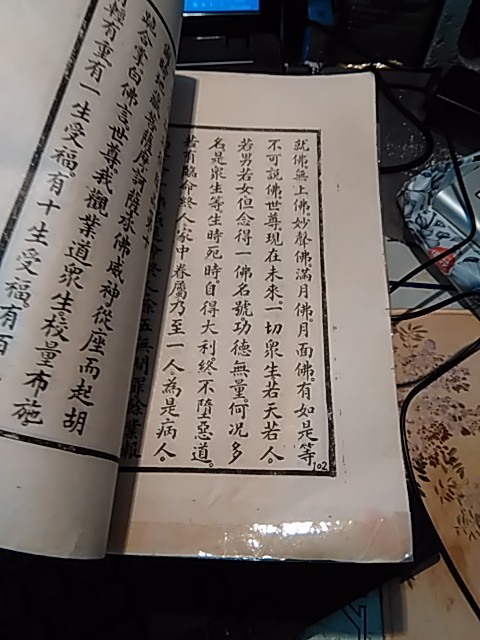 就佛無上佛妙聲佛滿月佛月面佛有如是等
不可說佛世尊現在未來一切眾生若天若人。
若男若女但念得一佛名號功德無量何況多
名是眾生等生時死時自得大利終不墮惡道。
若有臨命終人家中眷屬乃至一人為是病人。
五無間罪餘業報
102
跪合掌白佛言世尊我觀業道眾生校量布施
輕有重有一生受福有十生受福有百
承佛威神從座而起胡